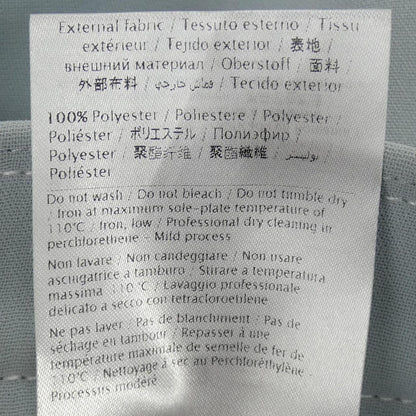 External fabric / Tessuto esterno / Tissu
extérieur / Tejido exterior / 表地 /
внешний материал / Oberstoff / 面料 /
外部布料 / قماش خارجي / Tecido exterior
100% Polyester / Poliestere / Polyester /
Poliéster / ポリエステル / Полиэфир /
Polyester / 聚酯纤维 / 聚酯纖維 / بوليستر /
Poliéster
Do not wash / Do not bleach / Do not tumble dry
/ Iron at maximum sole-plate temperature of
110°C / Iron, low / Professional dry cleaning in
perchlorethene - Mild process
Non lavare / Non candeggiare / Non usare
asciugatrice a tamburo / Stirare a temperatura
massima 110°C / Lavaggio professionale
delicato a secco con tetracloroetilene
Ne pas laver / Pas de blanchiment / Pas de
séchage en tambour / Repasser à une
température maximale de semelle de fer de
110°C / Nettoyage à sec au Perchloréthylène -
Processus modéré